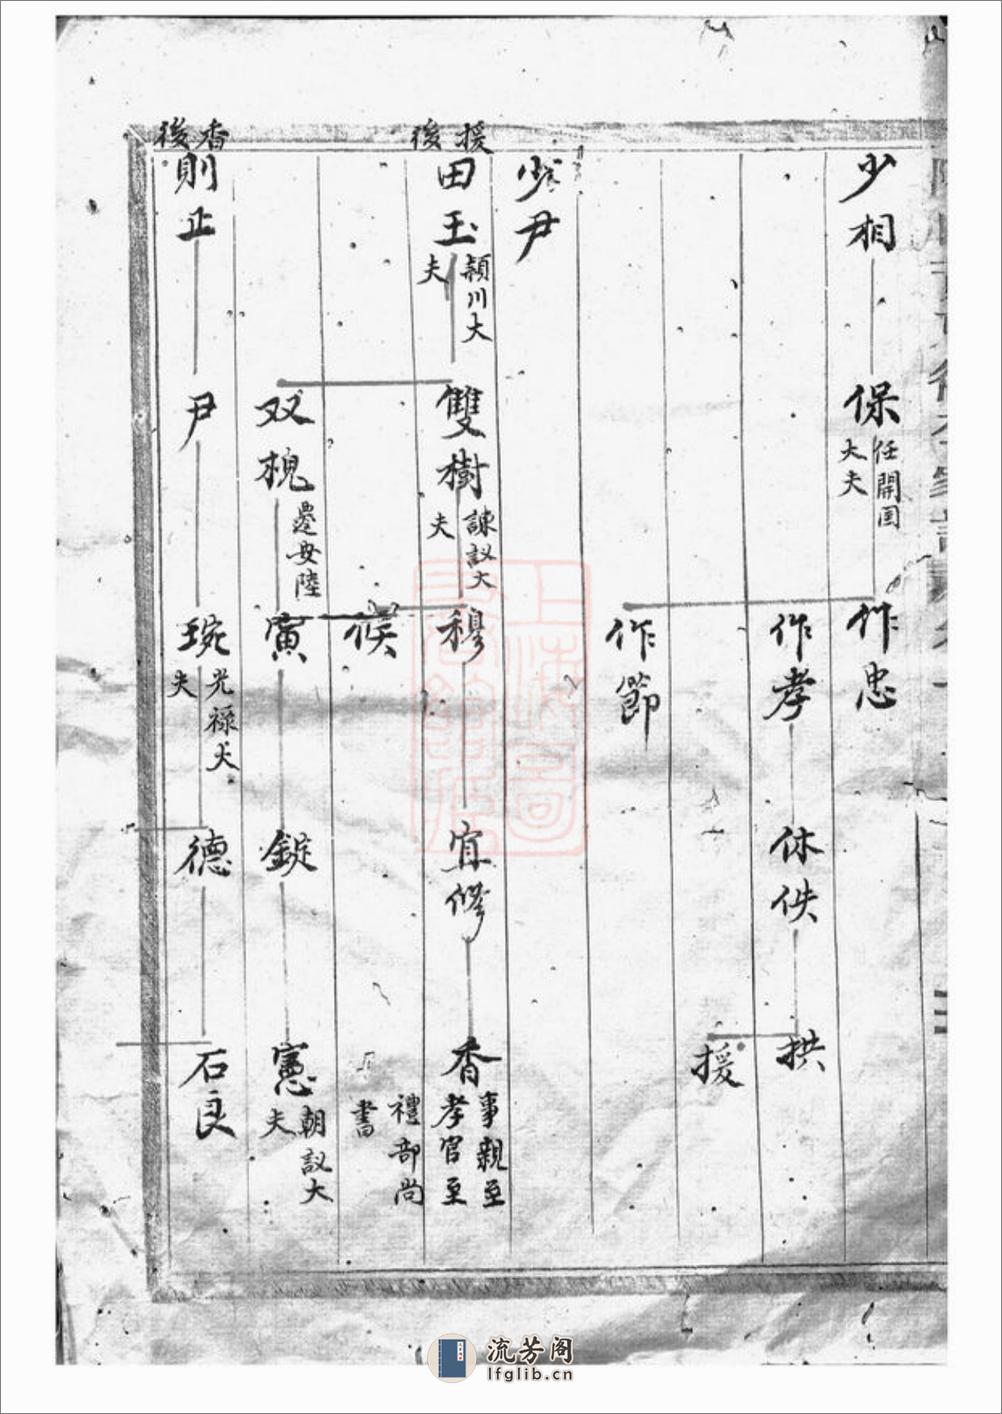 少相
保
任開国
大夫
作忠
作孝
休佚
拱
援
作節
少尹
援後
田玉
頴川大
夫
雙樹
諫議大
夫
穆
宜修
香
事親至
孝官至
禮部尚
書
候
双槐
遷安陸
寅
錠
憲
朝議大
夫
香後
則正
尹
琬
光禄大
夫
德
石良
流芳阁
lfglib.cn